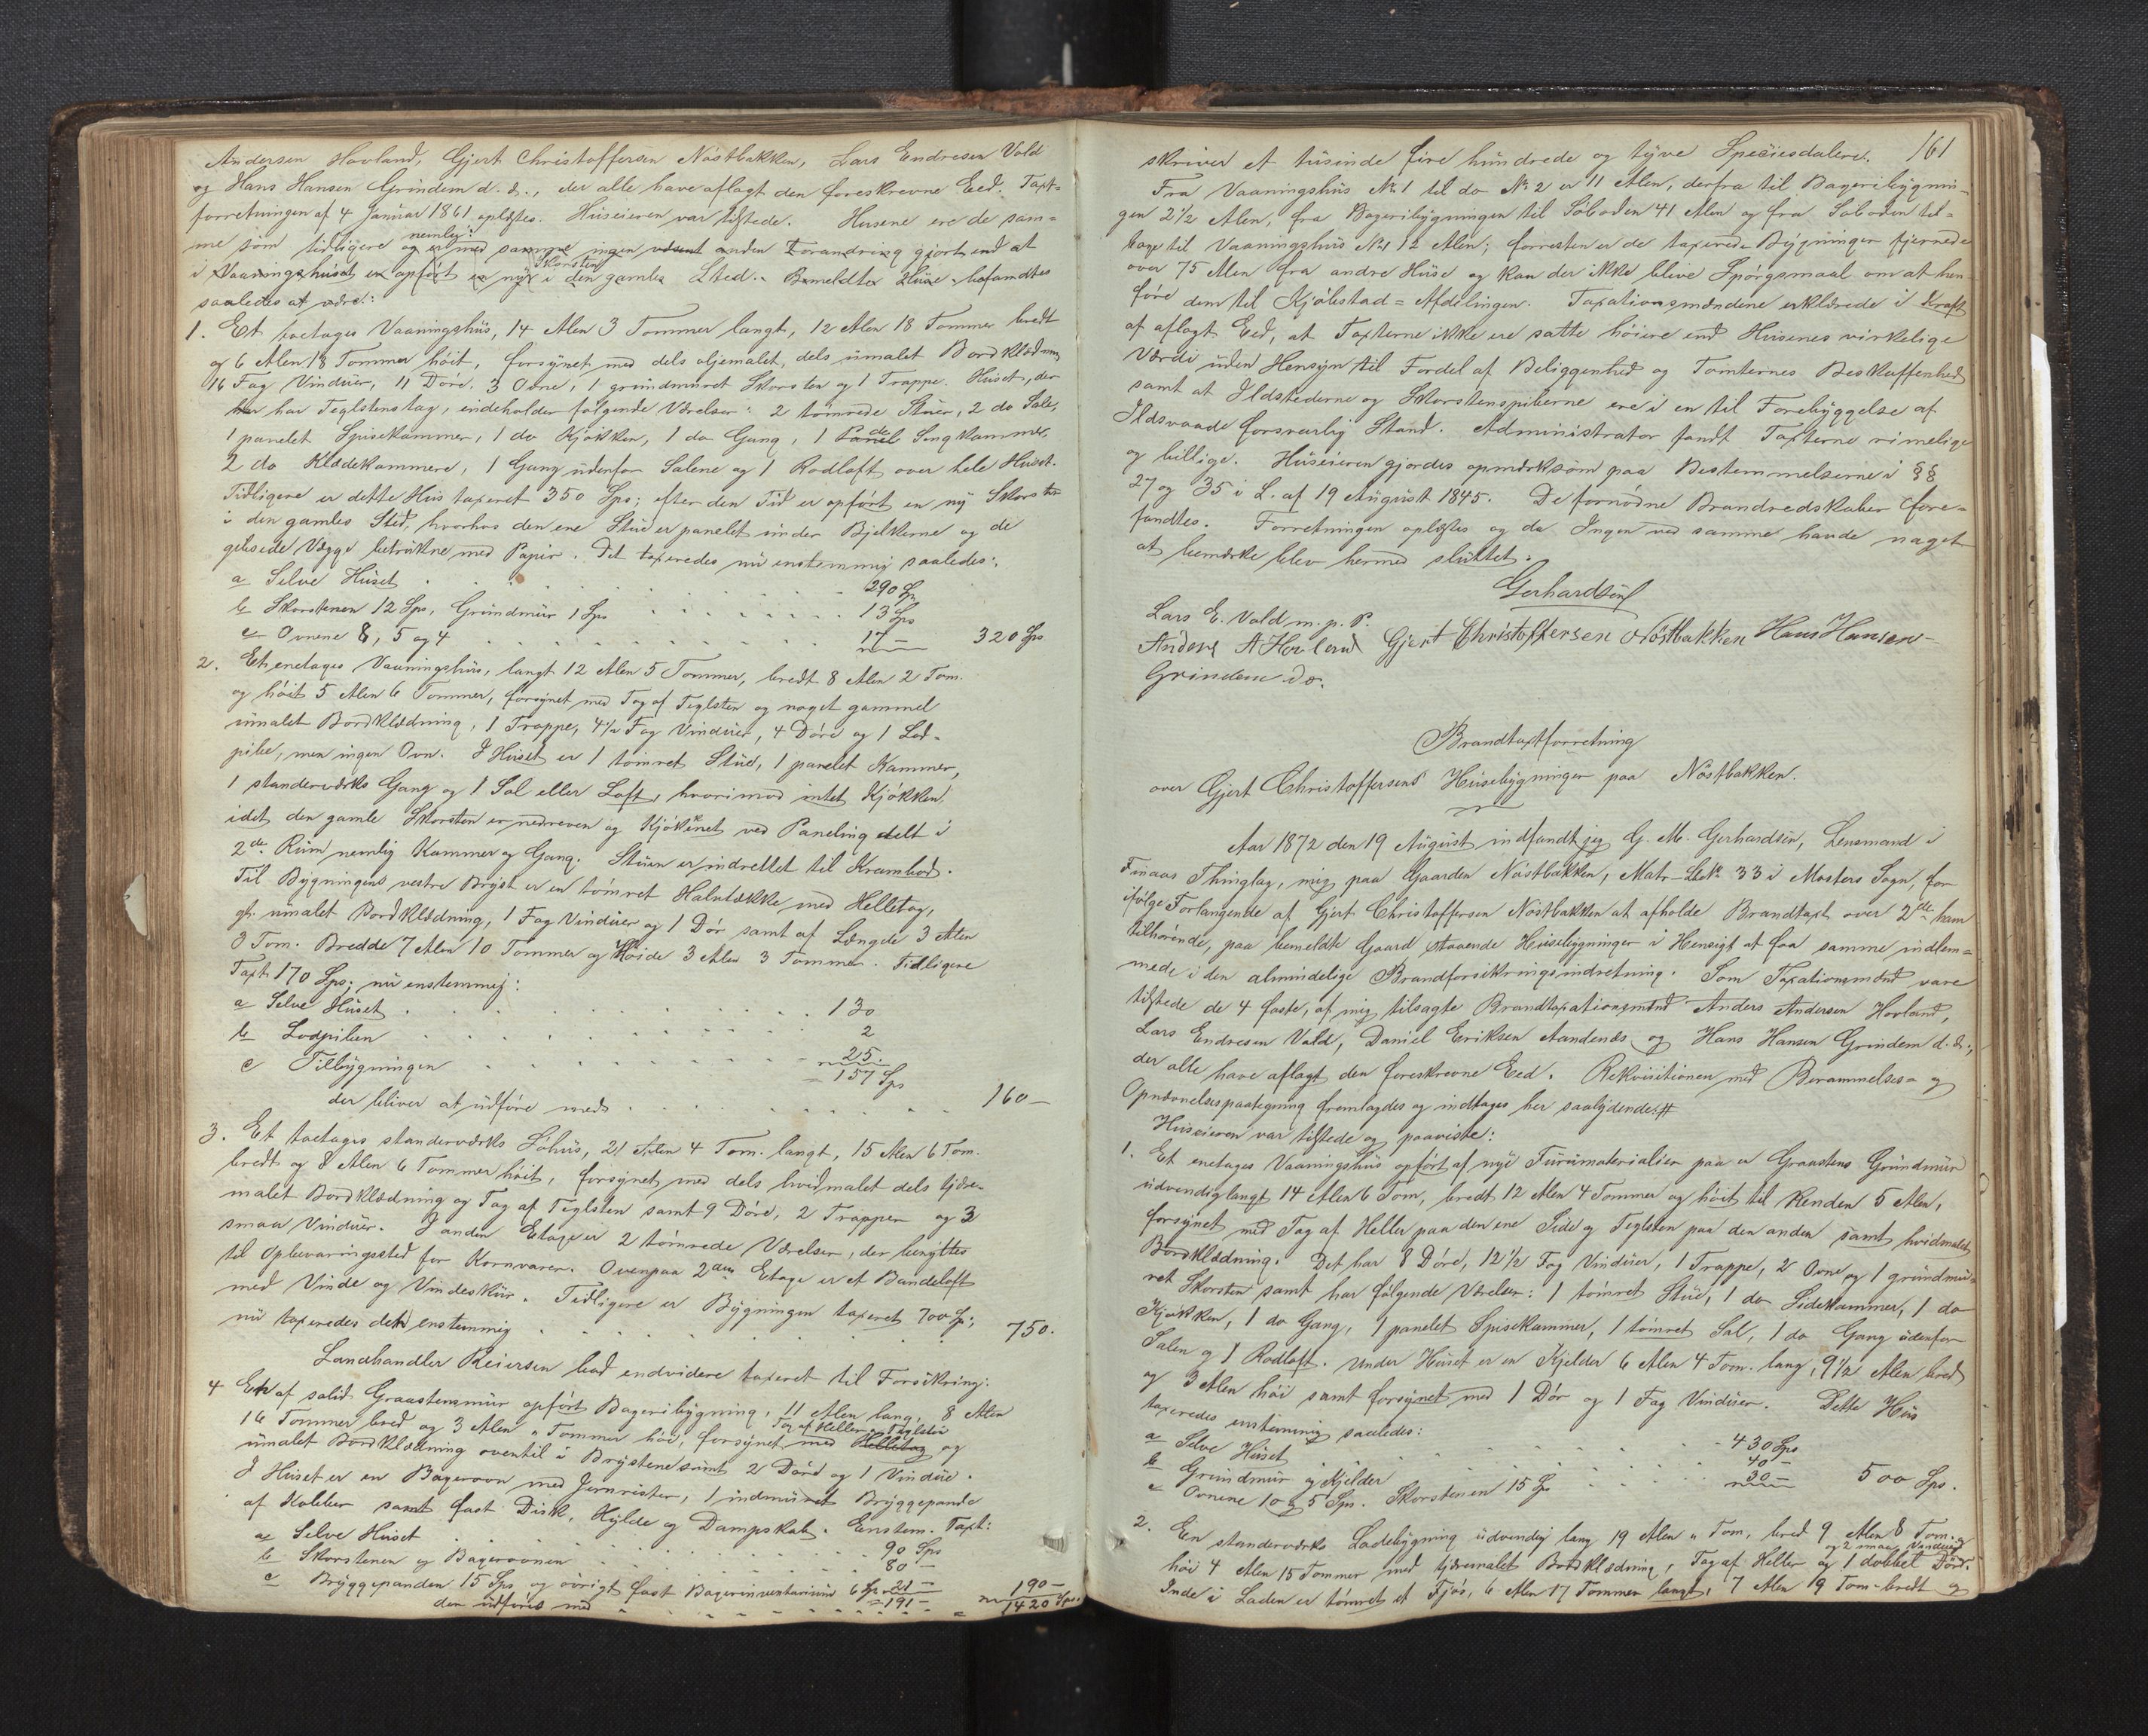 Andersen Hovland, Gjert Christoffersen Nöstbakken, Lars Endresen Vold
og Hans Hansen Grindem d. æ., der alle have aflagt den foreskrevne Eed. Taxt-
forretningen af 4 Januar 1861 oplæstes. Huseieren var tilstede. Husene ere de sam-
me som tidligere nemlig: og er med samme ingen anden Forandring gjort end at
i Vaaningshuset er opført en ny Skorsten i den gamles Sted. Bemeldte Huse befandtes
saaledes at være:
1. Et toetages Vaaningshus, 14 Alen 3 Tommer langt, 12 Alen 18 Tommer bredt
og 6 Alen 18 Tommer höit, forsynet med dels oljemalet, dels umalet Bordklædning
16 Fag Vinduer, 11 Döre, 3 Ovne, 1 grundmuret Skorsten og 1 Trappe. Huset, der
har Teglstenstag, indeholder følgende Værelser: 2 tömrede Stuer, 2 do Sale,
1 panelet Spisekammer, 1 do Kjökken, 1 do Gang, 1 Sengkammer,
2 do Klædekammere, 1 Gang udenfor Salene og 1 Rodloft over hele Huset.
Tidligere er dette Hus taxeret 350 Spd; efter den Tid er opført en ny Skorsten
i den gamles Sted, hvorhos den ene Stue er panelet under Bjelkerne og de
gibsede Vægge betrukne med Papir. Det taxeredes nu enstemmig saaledes:
a Selve Huset . . . 290 Spd
b Skorstenen 12 Spd, Grundmur 1 Spd . . . 13 Spd
c Ovnene 8, 5 og 4 . . . 17 — 320 Spd
2. Et enetages Vaaningshus, langt 12 Alen 5 Tommer, bredt 8 Alen 2 Tom.
og höit 5 Alen 6 Tommer, forsynet med Tag af Teglsten og noget gammel
umalet Bordklædning, 1 Trappe, 4½ Fag Vinduer, 4 Döre og 1 Lod-
pibe, men ingen Ovn. I Huset er 1 tömret Stue, 1 panelet Kammer,
1 standerværks Gang og 1 Sal eller Loft, hvorimod intet Kjökken,
idet den gamle Skorsten er nedreven og Kjökkenet ved Paneling delt i
2de Rum nemlig Kammer og Gang. Stuen er indrettet til Krambod.
Til Bygningens vestre Bryst er en tömret Halvtække med Helletag,
gl. umalet Bordklædning, 1 Fag Vinduer og 1 Dör samt af Længde 3 Alen
3 Tom. Bredde 7 Alen 10 Tommer og Höide 3 Alen 3 Tommer. Tidligere
Taxt 170 Spd; nu enstemmig:
a Selve Huset . . . 130
b Lodpiben . . . 2
c Tilbygningen . . . 25.
= 157 Spd
der bliver at udföre med . . . 160 —
3. Et toetages standerværks Söhus, 21 Alen 4 Tom. langt, 15 Alen 6 Tom.
bredt og 8 Alen 6 Tommer höit, forsynet med dels hvidmalet dels tjære-
malet Bordklædning og Tag af Teglsten samt 9 Döre, 2 Trapper og 3
smaa Vinduer. I anden Etage er 2 tömrede Værelser, der benyttes
til Opbevaringssted for Kornvarer. Ovenpaa 2den Etage er et Bandeloft
med Vinde og Vindeskur. Tidligere er Bygningen taxeret 700 Spd;
nu taxeredes den enstemmig . . . 750.
Landhandler Reiersen lod endvidere taxeret til Forsikring:
4 En af solid Graastensmur opført Bageribygning, 11 Alen lang, 8 Alen
16 Tommer bred og 3 Alen " Tommer höi, forsynet med Tag af Heller og Teglsten og
umalet Bordklædning oventil i Brystene samt 2 Döre og 1 Vindue.
I Huset er en Bagerovn med Jernrister, 1 indmuret Bryggepande
af Kobber samt fast Disk, Hylde og Dampskab. Enstem. Taxt:
a Selve Huset . . . 90 Spd
b Skorstenen og Bagerovnen . . . 80 —
c Bryggepanden 15 Spd og övrigt fast Bageriinventarium 6 Spd 21 — 190 —
der udføres med = 191 — 1420 Spd
161
skriver et tusinde fire hundrede og tyve Speciesdalere.
Fra Vaaningshus No 1 til do No 2 er 11 Alen, derfra til Bageribygnin-
gen 2½ Alen, fra Bageribygningen til Söboden 41 Alen og fra Söboden til-
bage til Vaaningshus No 1 12 Alen; forresten er de taxerede Bygninger fjernede
over 75 Alen fra andre Huse og kan der ikke blive Spörgsmaal om at hen-
före dem til Kjöbstad-Afdelingen. Taxationsmændene erklærede i Kraft
af aflagt Eed, at Taxterne ikke ere satte höiere end Husenes virkelige
Værdi uden Hensyn til Fordel af Beliggenhed og Tomternes Beskaffenhed
samt at Ildstederne og Skorstenspiberne ere i en til Forebyggelse af
Ildsvaade forsvarlig Stand. Administrator fandt Taxterne rimelige
og billige. Huseieren gjordes opmerksom paa Bestemmelserne i §§
27 og 35 i L. af 19 August 1845. De fornödne Brandredskaber fore-
fandtes. Forretningen oplæstes og da Ingen ved samme havde noget
at bemærke blev hermed sluttet.
Gerhardsen
Lars E. Vold m. p. P.
Anders A Hovland Gjert Christoffersen Nöstbakken Hans Hansen
Grindem do.
Brandtaxtforretning
over Gjert Christoffersens Husebygninger paa Nöstbakken.
Aar 1872 den 19 August indfandt jeg G. M. Gerhardsen, Lensmand i
Finaas Thinglag, mig paa Gaarden Nöstbakken, Matr-Löb No 33 i Mosters Sogn, for
ifölge Forlangende af Gjert Christoffersen Nöstbakken at afholde Brandtaxt over 2de ham
tilhörende, paa bemeldte Gaard staaende Husebygninger i Hensigt at faa samme indlem-
mede i den almindelige Brandforsikringsindretning. Som Taxationsmænd vare
tilstede de 4 faste, af mig tilsagte Brandtaxationsmænd Anders Andersen Hovland,
Lars Endresen Vold, Daniel Eriksen Aandenæs og Hans Hansen Grindem d. æ.,
der alle have aflagt den foreskrevne Eed. Rekvisitionen med Berammelses- og
Opnævnelsespaategning fremlagdes og indtages her saalydende: #
Huseieren var tilstede og paaviste:
1. Et enetages Vaaningshus opført af nye Furumaterialier paa en Graastens Grundmur
udvendig langt 14 Alen 6 Tom, bredt 12 Alen 4 Tommer og höit til Renden 5 Alen,
forsynet med Tag af Heller paa den ene Side og Teglsten paa den anden samt hvidmalet
Bordklædning. Det har 8 Döre, 12½ Fag Vinduer, 1 Trappe, 2 Ovne og 1 grundmu-
ret Skorsten samt har fölgende Værelser: 1 tömret Stue, 1 do Sidekammer, 1 do
Kjökken, 1 do Gang, 1 panelet Spisekammer, 1 tömret Sal, 1 do Gang udenfor
Salen og 1 Rodloft. Under Huset er en Kjelder 6 Alen 4 Tom. lang, 9½ Alen bred
og 3 Alen höi samt forsynet med 1 Dör og 1 Fag Vinduer. Dette Hus
taxeredes enstemmig saaledes:
a Selve Huset . . . 430 Spd
b Grundmur og Kjelder . . . 40 —
c Ovnene 10 og 5 Spd. Skorstenen 15 Spd . . . 30 — 500 Spd.
2. En standerværks Ladebygning udvendig lang 19 Alen " Tom, bred 9 Alen 8 Tom. og
höi 4 Alen 15 Tommer med tjæremalet Bordklædning, Tag af Heller og 2 smaa Vinduer og 1 dobbel Dör.
Inde i Laden er tömret et Fjös, 6 Alen 17 Tommer langt, 7 Alen 19 Tom bredt og